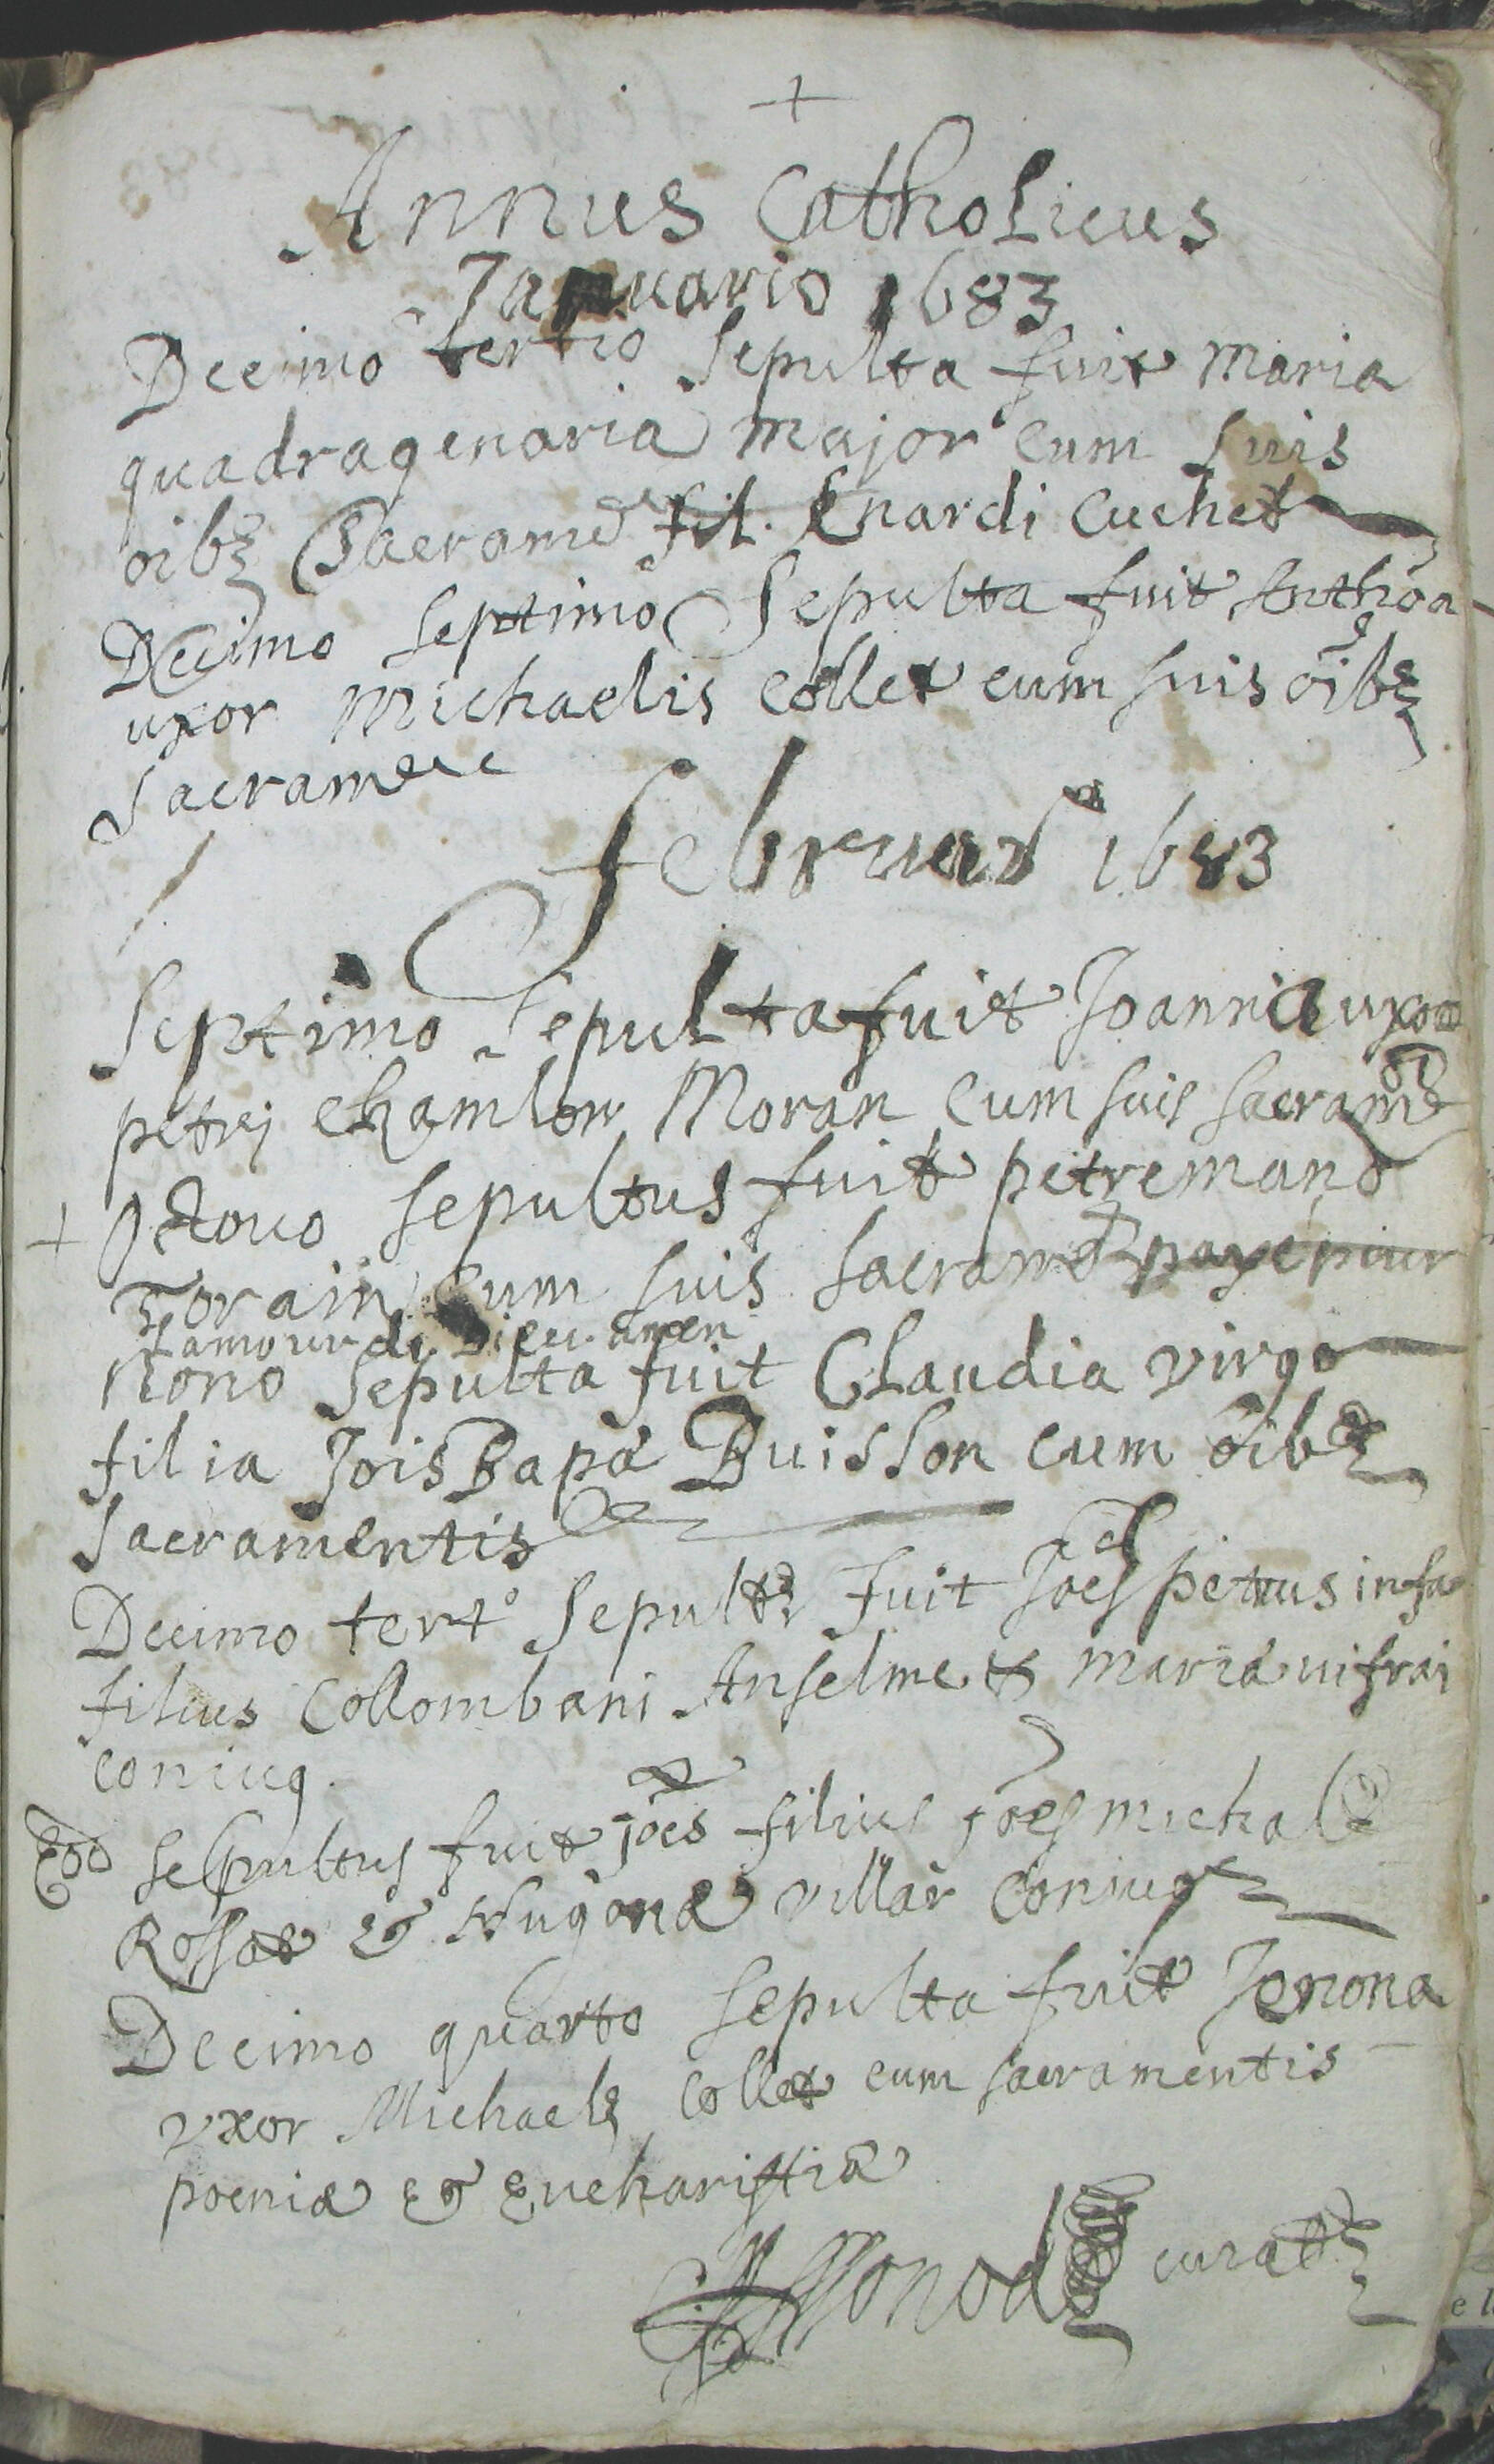 +
Annus Catholicus
Januario 1683
Decimo tertio sepulta fuit Maria
quadragenaria major cum suis
oibz Sacrame fil. Enardi Cuchet
Decimo septimo sepulta fuit Antho͞a
uxor Michaelis Collet cum suis oibz
sacrame
Februar 1683
Septimo sepulta fuit Joannia uxor
petri chamlon Moran cum suis sacrame
+ octovo sepultus fuit petremand
cum suis sacrame paye pour
Lamour de Dieu. amen
Nono sepulta fuit Claudia virgo
filia Jois Bapa Buisson cum oibz
sacramentis
Decimo tert° sepultz fuit Joes petrus infa
filius Collombani Anselme & maria uifrai
coniug.
Eod sepultus fuit joes filius joes michalis
Rosset & Hugona villar coniug
Decimo quarto sepulta fuit Jenona
vxor Michaelz Collet cum sacramentis
poenia & Eucharistia
curatz